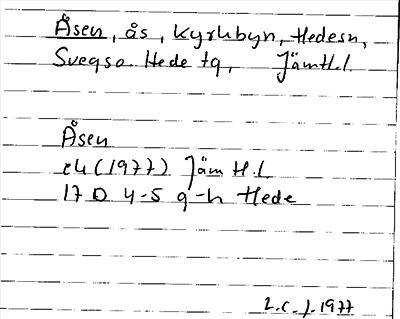 Åsen, ås, Kyrkbyn, Hedesn,
Svegso. Hede tg, JämtH.l.
Åsen
ek (1977) Jäm H.L
17 D 4-5 g-h Hede
L.C.J. 1977